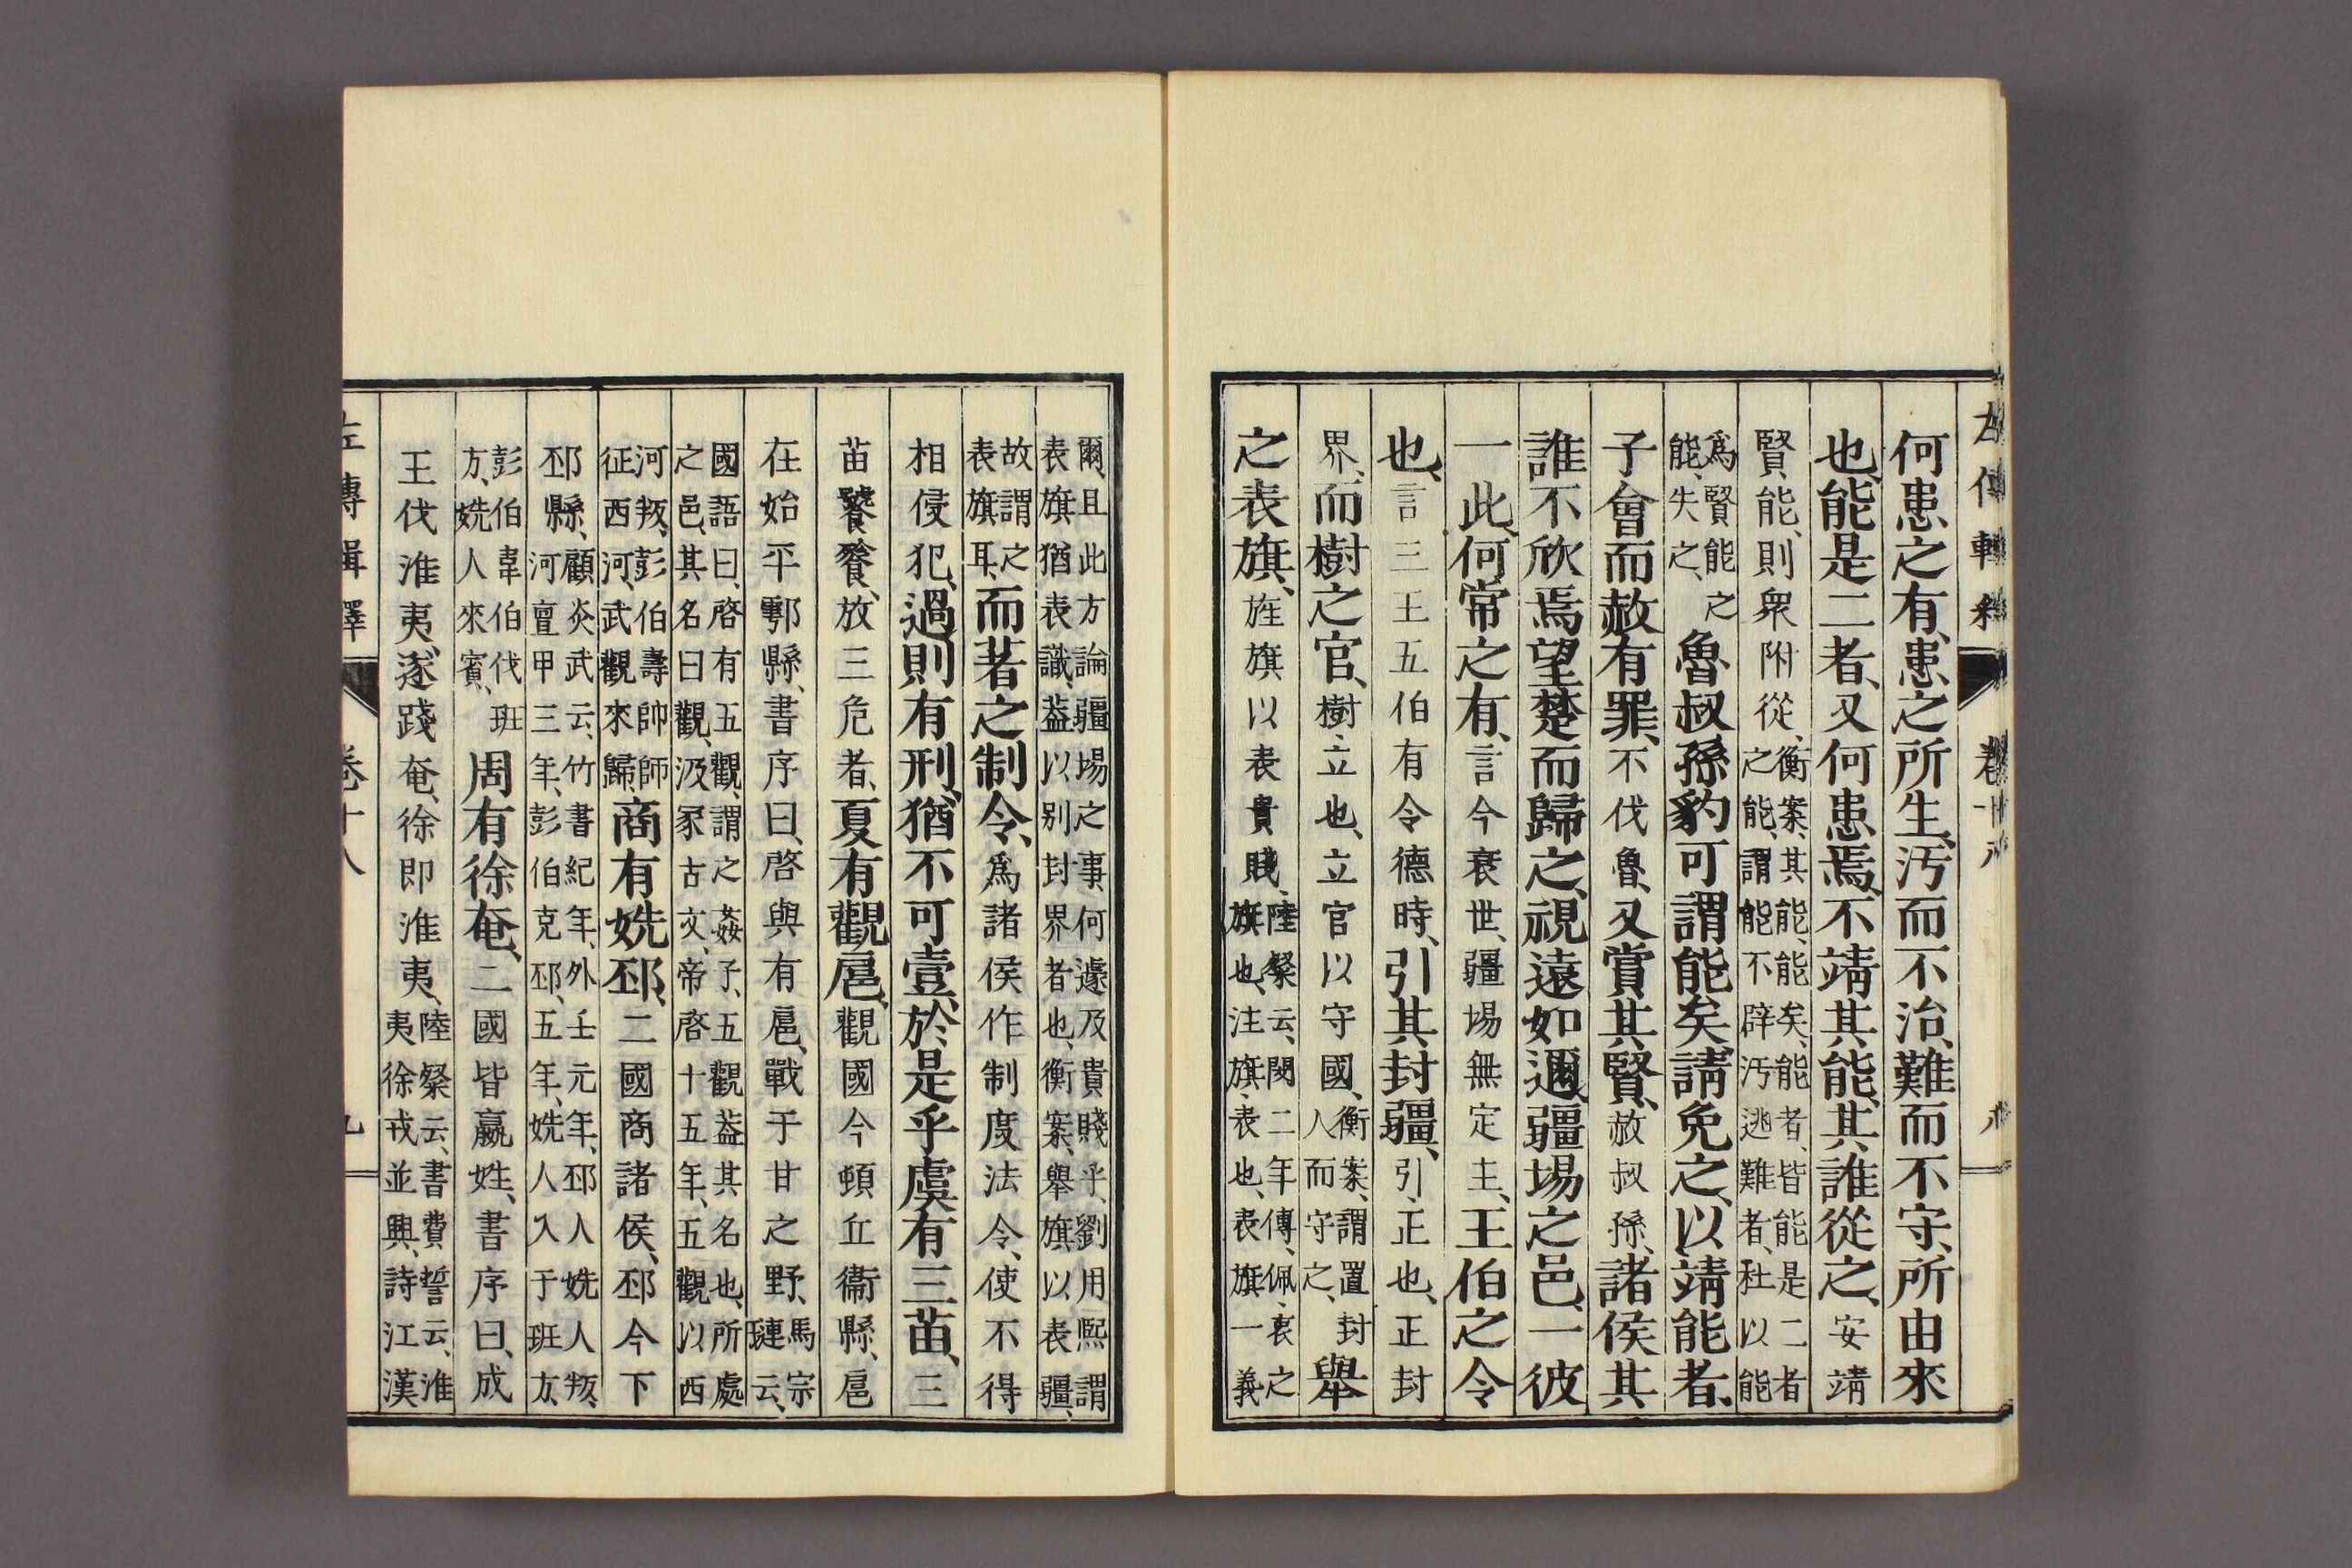 何患之有、患之所生、汚而不治、難而不守、所由來
也、能是二者、又何患焉、不靖其能、其誰從之、安靖
賢能、則衆附從、衡案、其能、能矣、能者、皆能是二者之能、謂能不辟汚逃難者、杜以能
爲賢能之能、失之、魯叔孫豹可謂能矣、請免之、以靖能者、
子會而赦有罪、不伐魯、又賞其賢、赦叔孫、諸侯其
誰不欣焉望楚而歸之、視遠如邇、疆埸之邑、一彼
一此、何常之有、言今衰世、疆埸無定主、王伯之令
也、言三王五伯有令德時、引其封疆、引、正也、正封
界、而樹之官、樹、立也、立官以守國、衡案、謂置封人而守之、舉
之表旗、旌旗以表貴賤、陸粲云、閔二年傳、佩、衷之旗也、注旗、表也、表旗一義
爾、且此方論疆埸之事何遽及貴賤乎、劉用熙謂表旗猶表識、蓋以別封界者也、衡案、舉旗以表疆、
故謂之表旗耳、而著之制令、爲諸侯作制度法令、使不得
相侵犯、過則有刑、猶不可壹、於是乎虞有三苗、三
苗饕餮、放三危者、夏有觀扈、觀國今頓丘衞縣、扈
在始平鄠縣、書序曰、啓與有扈、戰于甘之野、馬宗璉云、
國語曰、啓有五觀、謂之姦子、五觀蓋其名也、所處之邑、其名曰觀、汲冢古文、帝啓十五年、五觀以西
河叛、彭伯壽帥師征西河、武觀來歸、商有姺邳、二國商諸侯、邳今下
邳縣、顧炎武云、竹書紀年、外壬元年、邳人姺人叛、河亶甲三年、彭伯克邳、五年、姺人入于班方、
彭伯韋伯伐班方、姺人來賓、周有徐奄、二國皆嬴姓、書序曰、成
王伐淮夷、遂踐奄、徐即淮夷、陸粲云、書費誓云、淮夷徐戎並興、詩江漢
左傳輯釋 卷十八 九